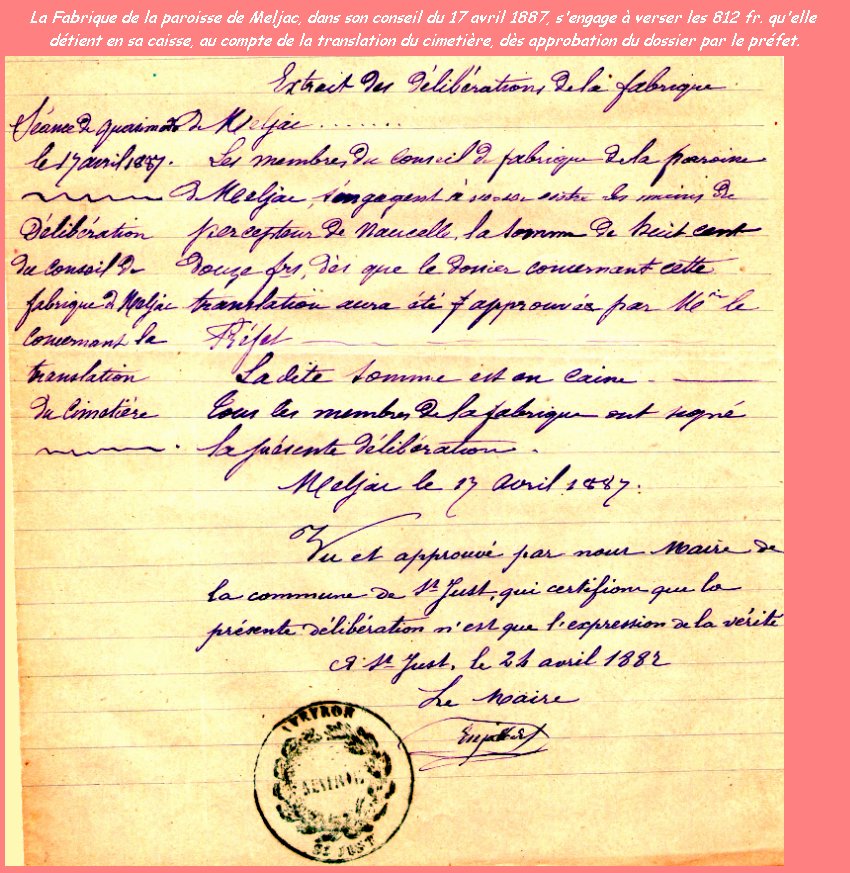 La Fabrique de la paroisse de Meljac, dans son conseil du 17 avril 1887, s'engage à verser les 812 fr. qu'elle
détient en sa caisse, au compte de la translation du cimetière, dès approbation du dossier par le préfet.
Extrait des délibérations de la fabrique
de Meljac .......
Séance de quasimodo
le 17 avril 1887.
Délibération
du conseil de
fabrique de Meljac
concernant la
translation
du cimetière
Les membres du conseil de fabrique de la paroisse
de Meljac, s'engagent à verser entre les mains de
percepteur de Naucelle, la somme de huit cent
douze frs, dès que le dossier concernant cette
translation aura été approuvée par Mr le
Préfet
La dite somme est en caisse.
Tous les membres de la fabrique ont signé
la présente délibération.
Meljac le 17 avril 1887.
Vu et approuvé par nous Maire de
la commune de St Just, qui certifions que la
présente délibération n'est que l'expression de la vérité
A St Just, le 24 avril 1887
Le Maire
AVEYRON
MAIRIE
ST JUST